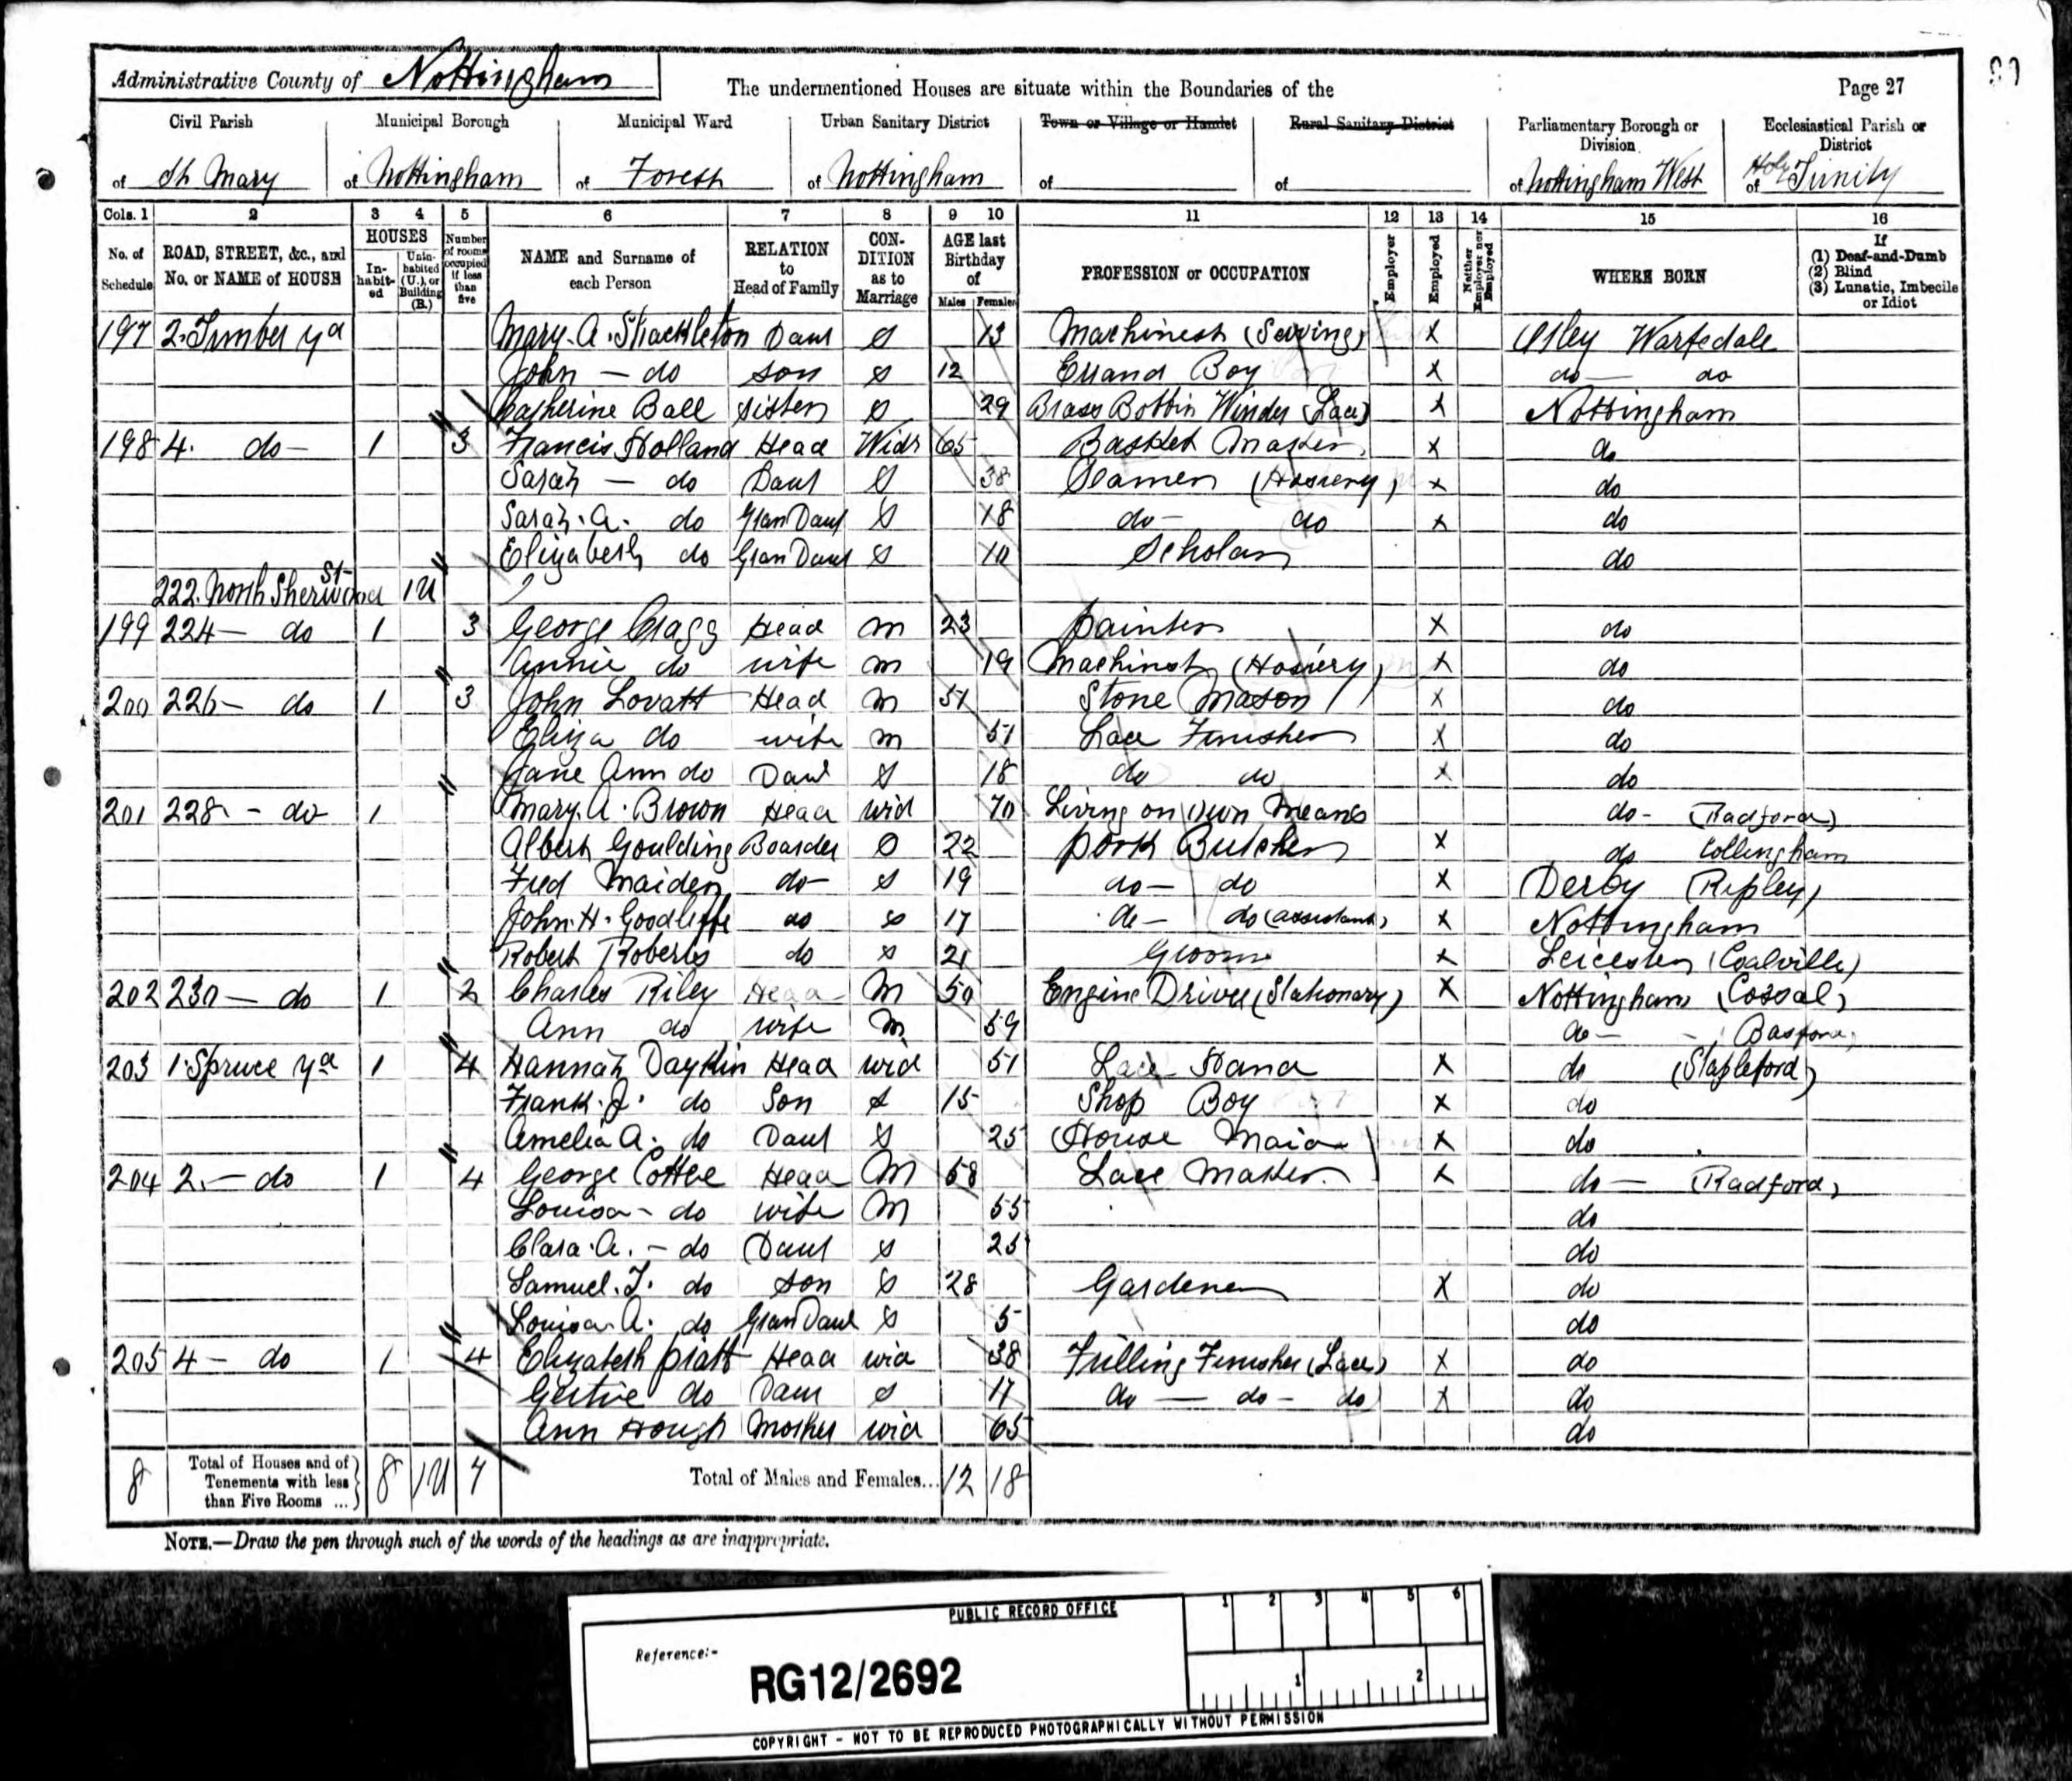 Administrative County of Nottingham
The undermentioned Houses are situate within the Boundaries of the
Page 27
Civil Parish Municipal Borough Municipal Ward Urban Sanitary District Town or Village or Hamlet Rural Sanitary District Parliamentary Borough or Division Ecclesiastical Parish or District
of St Mary of Nottingham of Forest of Nottingham of of of Nottingham West of Holy Trinity
Cols. 1 2 3 4 5 6 7 8 9 10 11 12 13 14 15 16
No. of Schedule ROAD, STREET, &c., and No. or NAME of HOUSE HOUSES In-habit-ed Unin-habited (U.), or Building (B.) Number of rooms occupied if less than five NAME and Surname of each Person RELATION to Head of Family CON-DITION as to Marriage AGE last Birthday of Males Females PROFESSION or OCCUPATION Employer Employed Neither Employer nor Employed WHERE BORN If (1) Deaf-and-Dumb (2) Blind (3) Lunatic, Imbecile or Idiot
197 2. Timber yd Mary. A. Shackleton Daur S 13 Machinest (Sewing) X Otley Warfedale
John — do son S 12 Errand Boy X do do
Catherine Ball sister S 29 Brass Bobbin Winder (Lace) X Nottingham
198 4. do 1 3 Francis Holland Head Widr 65 Basket Maker X do
Sarah — do Daur S 38 Seamer (Hosiery) X do
Sarah. A. do Gran Daur S 18 do do X do
Elizabeth do Gran Daur S 10 Scholar do
222. North Sherwood St 1U
199 224 — do 1 3 George Cragg Head M 23 painter X do
Annie do wife M 19 Machinest (Hosiery) X do
200 226 — do 1 3 John Lovatt Head M 51 Stone Mason X do
Eliza do wife M 51 Lace Finisher X do
Jane Ann do Daur S 18 do do X do
201 228 — do 1 Mary. A. Brown Head wid 70 Living on Own Means do - (Radford)
Albert Goulding Boarder S 22 pork Butcher X do Collingham
Fred Maiden do S 19 do — do X Derby (Ripley)
John. H. Goodliffe do S 17 do — do (assistant) X Nottingham
Robert Roberts do S 21 Groom X Leicester (Coalville)
202 230 — do 1 2 Charles Riley Head M 50 Engine Driver (Stationary) X Nottingham (Cossal)
Ann do wife M 59 do — (Basford)
203 1 Spruce yd 1 4 Hannah Daykin Head wid 51 Lace Hand X do (Stapleford)
Frank. J. do Son S 15 Shop Boy X do
Amelia A. do Daur S 25 House Maid X do
204 2. — do 1 4 George Cottee Head M 58 Lace Maker X do — (Radford)
Louisa - do wife M 55 do
Clara. A. - do Daur S 25 do
Samuel. T. do son S 28 Gardener X do
Louisa. A. do Gran Daur S 5 do
205 4 — do 1 4 Elizabeth pratt Head wid 38 Frilling Finisher (Lace) X do
Gertie do Daur S 17 do — do - do X do
Ann Hough Mother wid 65 do
8 Total of Houses and of Tenements with less than Five Rooms ... 8 1U 7 Total of Males and Females... 12 18
NOTE.—Draw the pen through such of the words of the headings as are inappropriate.
PUBLIC RECORD OFFICE
1 2 3 4 5 6
Reference:-
RG12/2692
1 2
COPYRIGHT - NOT TO BE REPRODUCED PHOTOGRAPHICALLY WITHOUT PERMISSION